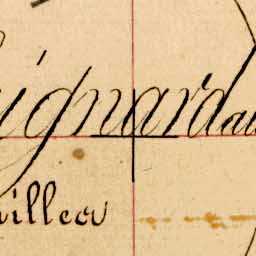 ignard au
illes